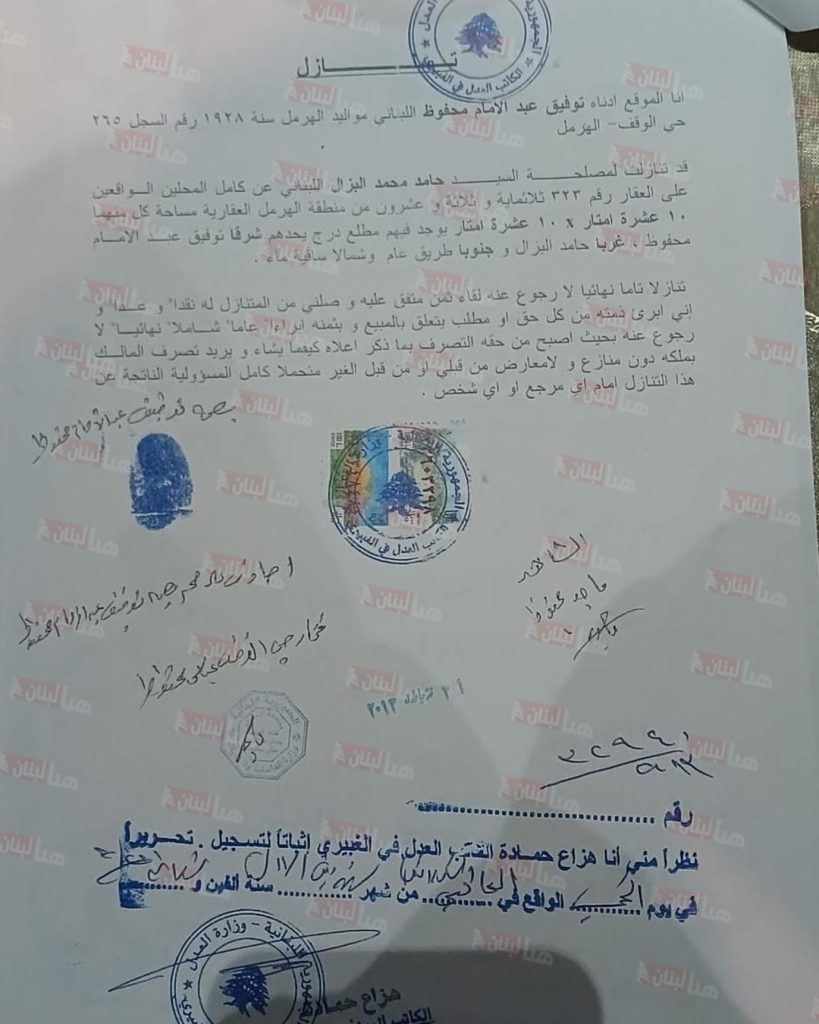 الجمهورية اللبنانية
وزارة العدل
الكاتب العدل في الغبيري
تـــــنـــــازل
انا الموقع ادناه توفيق عبد الامام محفوظ اللبناني مواليد الهرمل سنة ١٩٢٨ رقم السجل ٢٦٥
حي الوقف- الهرمل
قد تنازلت لمصلحة السيد حامد محمد البزال اللبناني عن كامل المحلين الواقعين
على العقار رقم ٣٢٣ ثلاثماية و ثلاثة و عشرون من منطقة الهرمل العقارية مساحة كل منهما
١٠ عشرة امتار x ١٠ عشرة امتار يوجد فيهم مطلع درج يحدهم شرقا توفيق عبد الامام
محفوظ ، غربا حامد البزال و جنوبا طريق عام وشمالا ساقية ماء .
تنازلا تاما نهائيا لا رجوع عنه لقاء ثمن متفق عليه و صلني من المتنازل له نقدا" و عدا" و
إني ابرئ ذمته من كل حق او مطلب يتعلق بالمبيع و بثمنه ابراءا" عاما" شاملا" نهائيا" لا
رجوع عنه بحيث اصبح من حقه التصرف بما ذكر اعلاه كيفما يشاء و يريد تصرف المالك
بملكه دون منازع و لامعارض من قبلي او من قبل الغير متحملا كامل المسؤولية الناتجة عن
هذا التنازل امام اي مرجع او اي شخص .
بصمة توفيق عبد الامام محفوظ
الجمهورية اللبنانية
الكاتب العدل في الغبيري
الشاهد
ماجد محفوظ
اصادق على صحة بصمة توفيق عبد الامام محفوظ
مختار حي الوقف محفوظ
الجمهورية اللبنانية
٢٠١٣
رقم
نظراً مني أنا هزاع حمادة الكاتب العدل في الغبيري إثباتاً لتسجيل . تحريراً
في يوم الواقع في من شهر سنة الفين و
الجمهورية اللبنانية - وزارة العدل
هزاع حمادة
الكاتب العدل
هنا لبنان